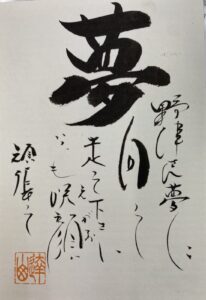 夢
野津さん夢に
向って
走って下さい
えがお
いつも咲顔
頑張って